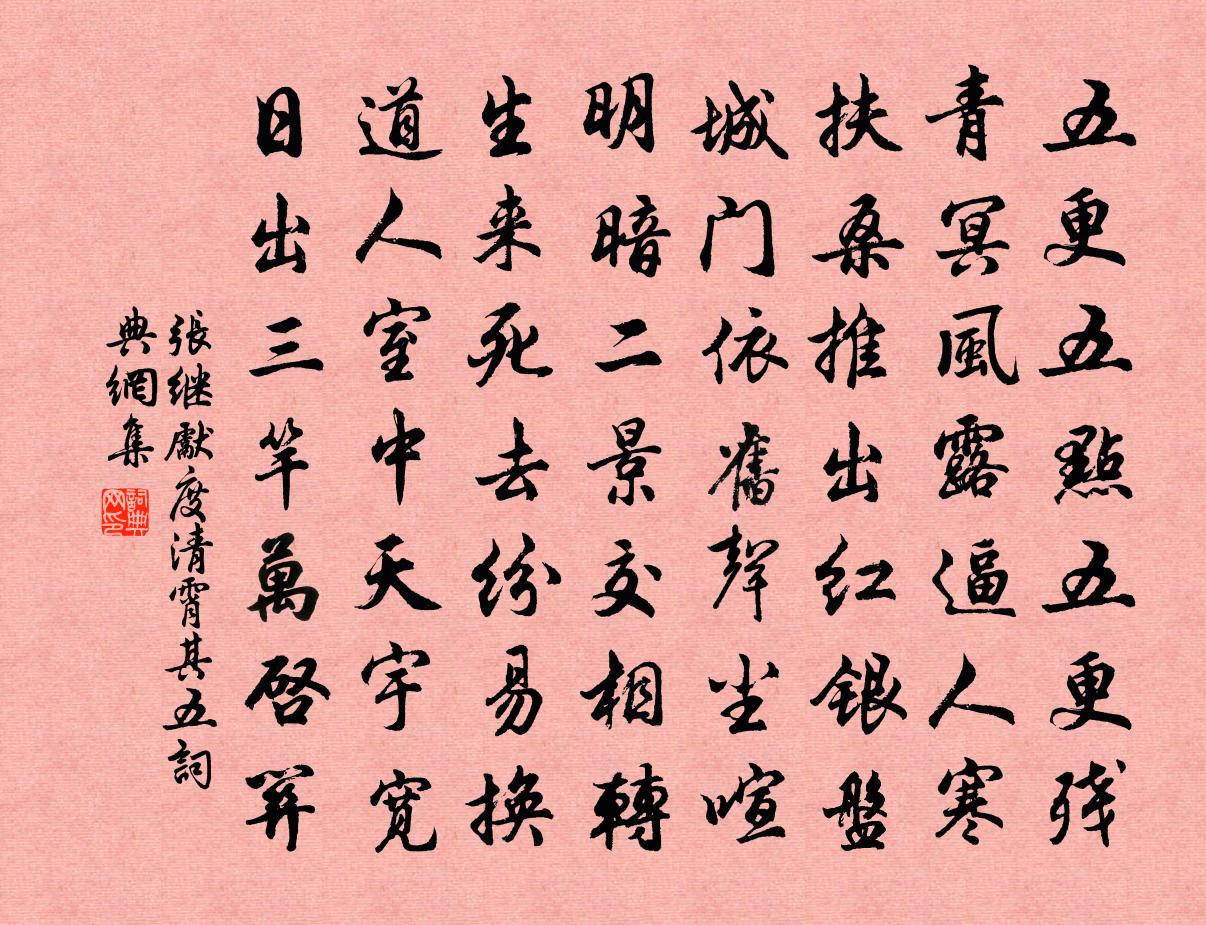 五更五點五更残
青冥風露逼人寒
扶桑推出红银盤
城门依舊聲尘喧
明暗二景交相轉
生来死去纷易换
道人室中天宇宽
日出三竿萬啓関
張继獻度清霄其五詞
典網集
詞典网印